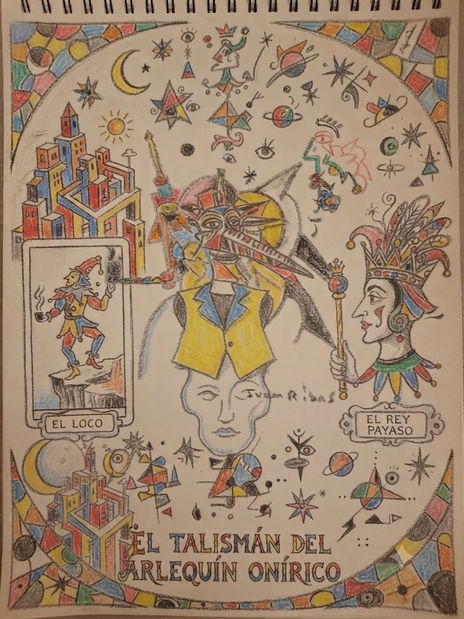 Juan Ribas
EL LOCO
EL REY
PAYASO
EL TALISMÁN DEL
ARLEQUÍN ONÍRICO